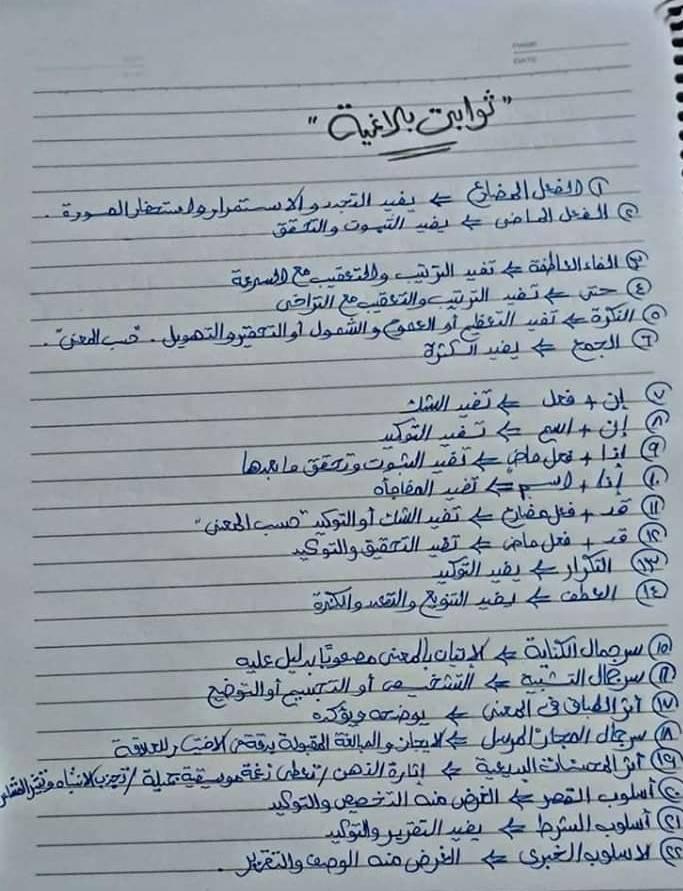 PAGE
DATE
"ثوابت بلاغية"
١ الفعل المضارع ⇐ يفيد التجدد والاستمرار واستحضار الصورة .
٢ الفعل الماضى ⇐ يفيد الثبوت والتحقق
٣ الفاء العاطفة ⇐ تفيد الترتيب والتعقيب مع السرعة
٤ حتى ⇐ تفيد الترتيب والتعقيب مع التراخى
٥ النكرة ⇐ تفيد التعظيم أو العموم والشمول أو التحقير والتهويل . "حسب المعنى" .
٦ الجمع ⇐ يفيد الكثرة
٧ إن + فعل ⇐ تفيد الشك
٨ إن + اسم ⇐ تفيد التوكيد
٩ إذا + فعل ماض ⇐ تفيد الثبوت وتحقق ما بعدها
١٠ إذا + اسم ⇐ تفيد المفاجأة
١١ قد + فعل مضارع ⇐ تفيد الشك أو التوكيد "حسب المعنى"
١٢ قد + فعل ماض ⇐ تفيد التحقيق والتوكيد
١٣ التكرار ⇐ يفيد التوكيد
١٤ العطف ⇐ يفيد التنويع والتعدد والكثرة
١٥ سر جمال الكناية ⇐ الإتيان بالمعنى مصحوبًا بدليل عليه
١٦ سر جمال التشبيه ⇐ التشخيص أو التجسيم أو التوضيح
١٧ أثر الطباق فى المعنى ⇐ يوضحه ويؤكده
١٨ سر جمال المجاز المرسل ⇐ الإيجاز والمبالغة المقبولة ودقة فى اختيار العلاقة
١٩ أثر المحسنات البديعية ⇐ إثارة الذهن / تعطى نغمة موسيقية جميلة / تجذب الانتباه وتثير
٢٠ أسلوب القصر ⇐ الغرض منه التخصيص والتوكيد
٢١ أسلوب الشرط ⇐ يفيد التقرير والتوكيد
٢٢ الاسلوب الخبرى ⇐ الغرض منه الوصف والتقرير .